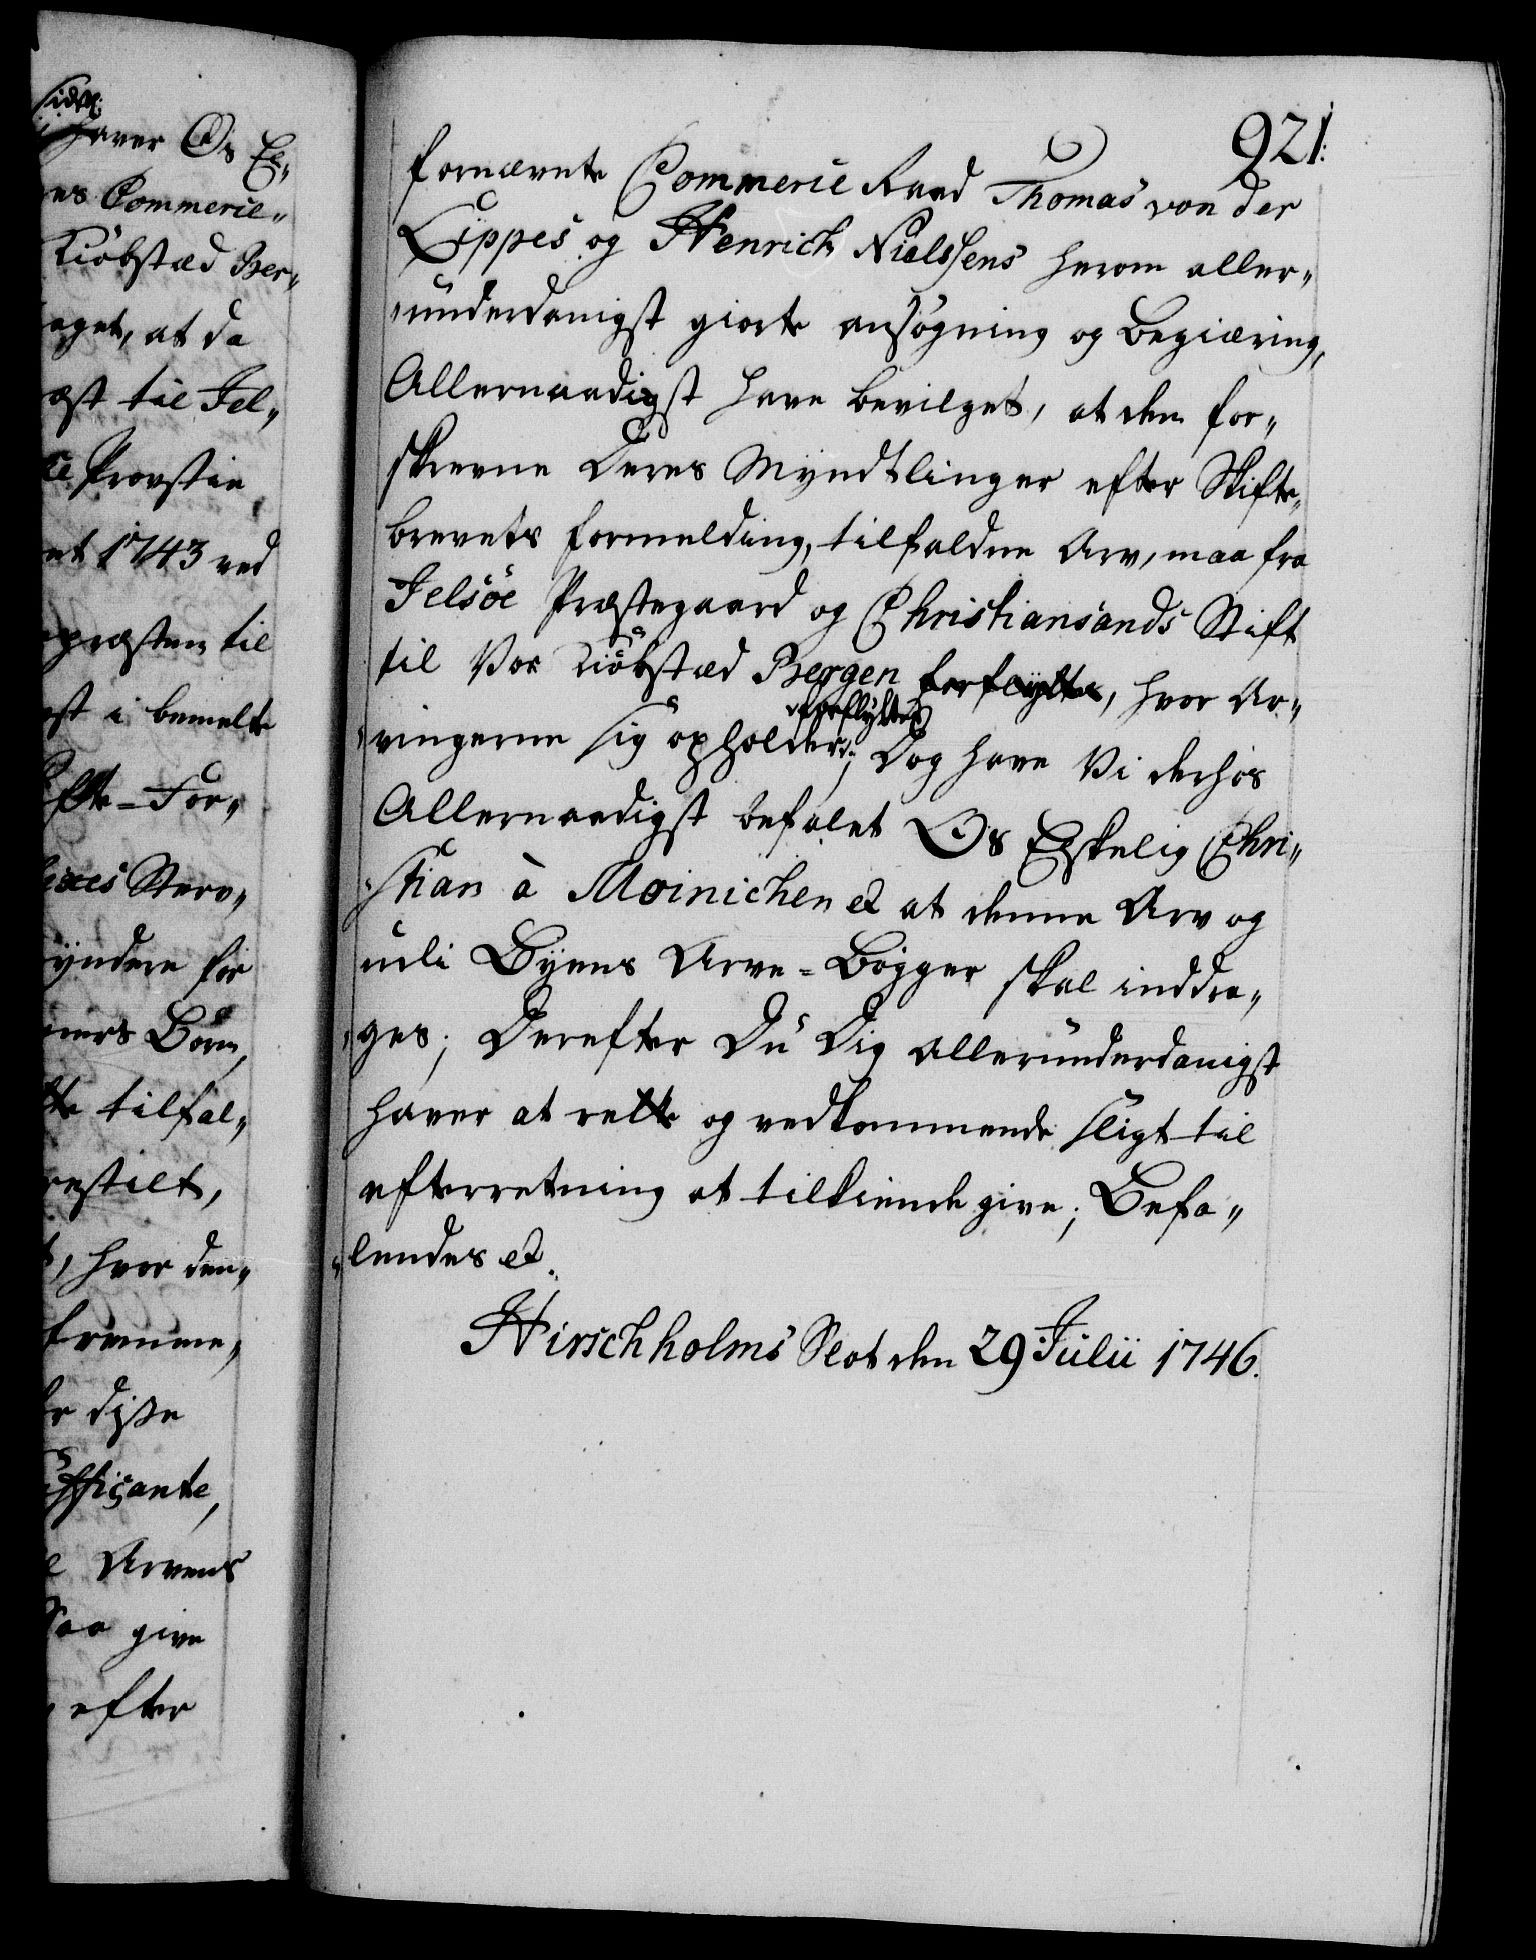 sidst:
haver Os El„
es Commercie„
Kiöbstæd Ber„
aget, at da
æst til Jel„
te Provstie
et 1743 ved
epræsten til
st i bemelte
ffte-For„
Sterv„
yndere for
ners Börn,
te tilfal„
restilt,
, hvor den„
fremme„
disse
sufficante,
Arvens
Saa give
efter
921.
fornævnte Commercie Raad Thomas von der
Lippes og Henrich Nielssens herom aller„
„underdanigst giorte ansøgning og Begiæring,
Allernaadigst have bevilget, at den for„
skrevne Deres Myndtlinger efter Skifte„
brevets formelding, tilfaldne Arv, maa fra
Jelsöe Præstegaard og Christiansands Stift
til Vor Kiöbstæd Bergen forflyttes, hvor Ar„
forflyttes
„vingerne sig opholder; Dog have Vi derhos
Allernaadigst befalet Os Elskelig Chri„
„stian à Möinichen et at denne Arv og
udi Byens Arve-Bøgger skal inddra„
„ges; Derefter Du Dig allerunderdanigst
haver at rette og vedkommende sligt til
efterretning at tilkiende give; Befa„
„lendes et.
Hirschholms Slot den 29 Julii 1746.